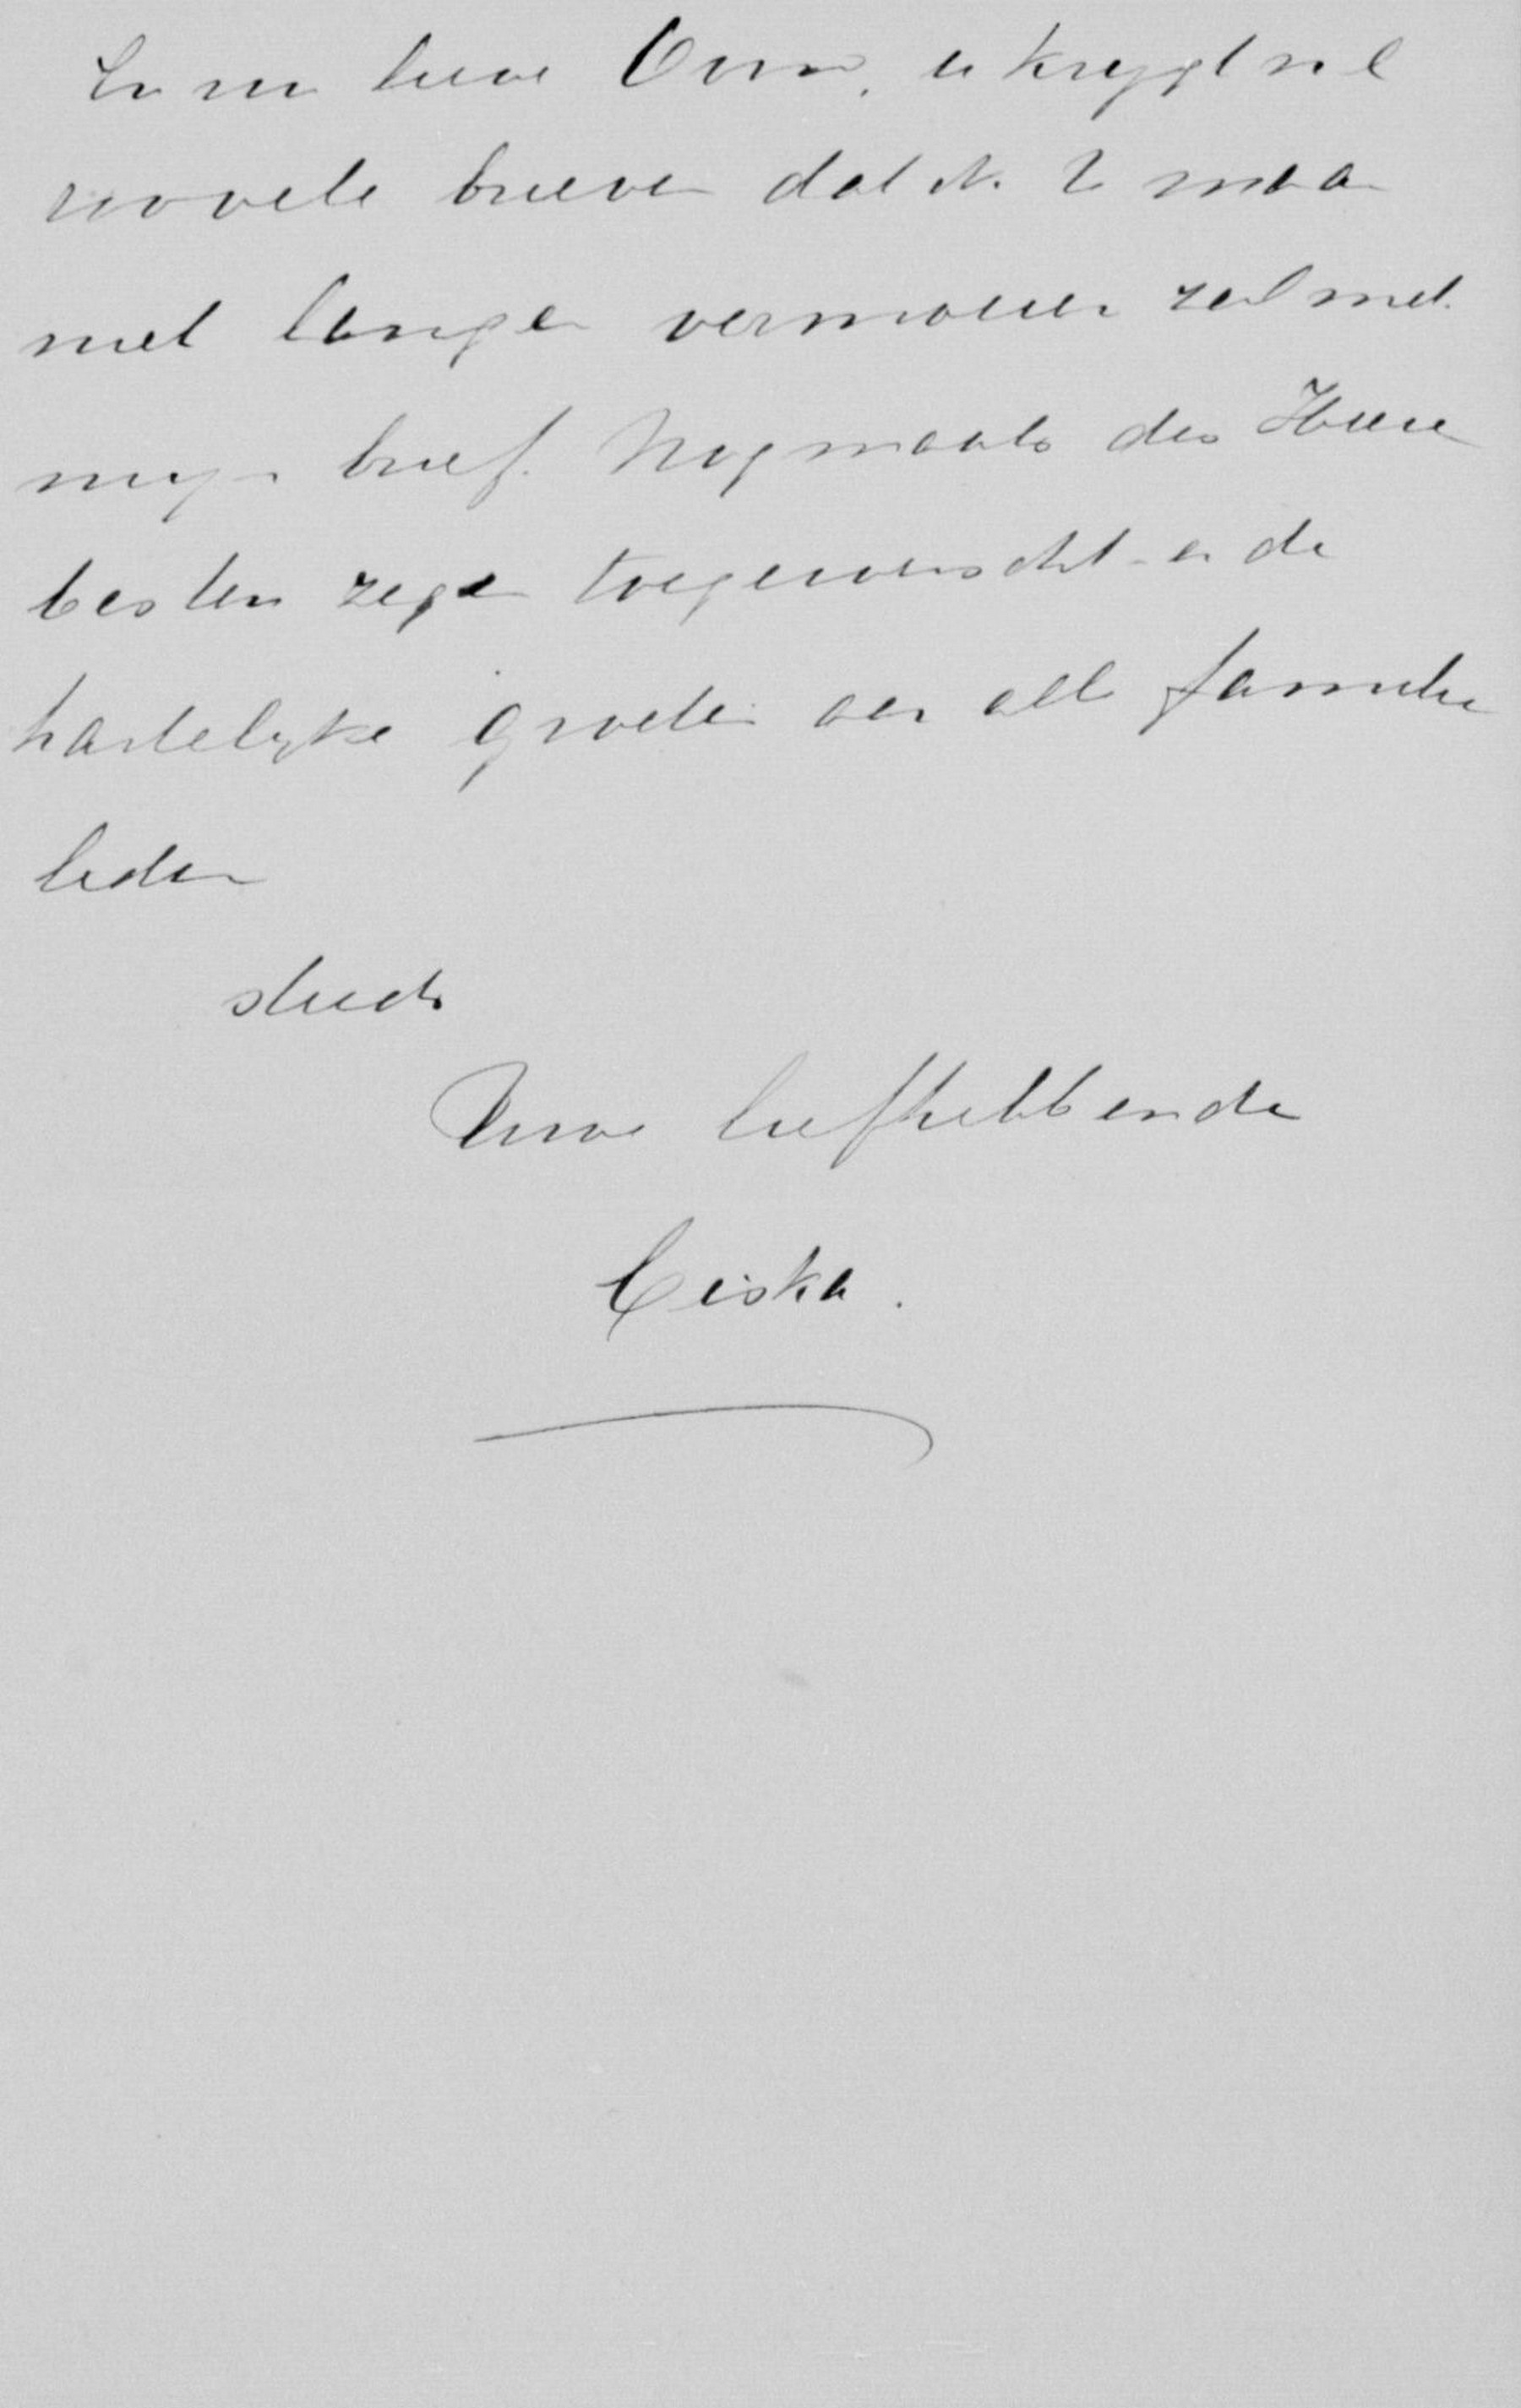 En nu lieve Oom, u krygt nl
zoovele brieven dat ik U maar
niet langer vermoeien zal met
myn brief. Nogmaals des Heere
besten zegen toegewenscht en de
hartelyke groeten aan alle familie
leden
steeds
Uwe liefhebbende
Ciska.